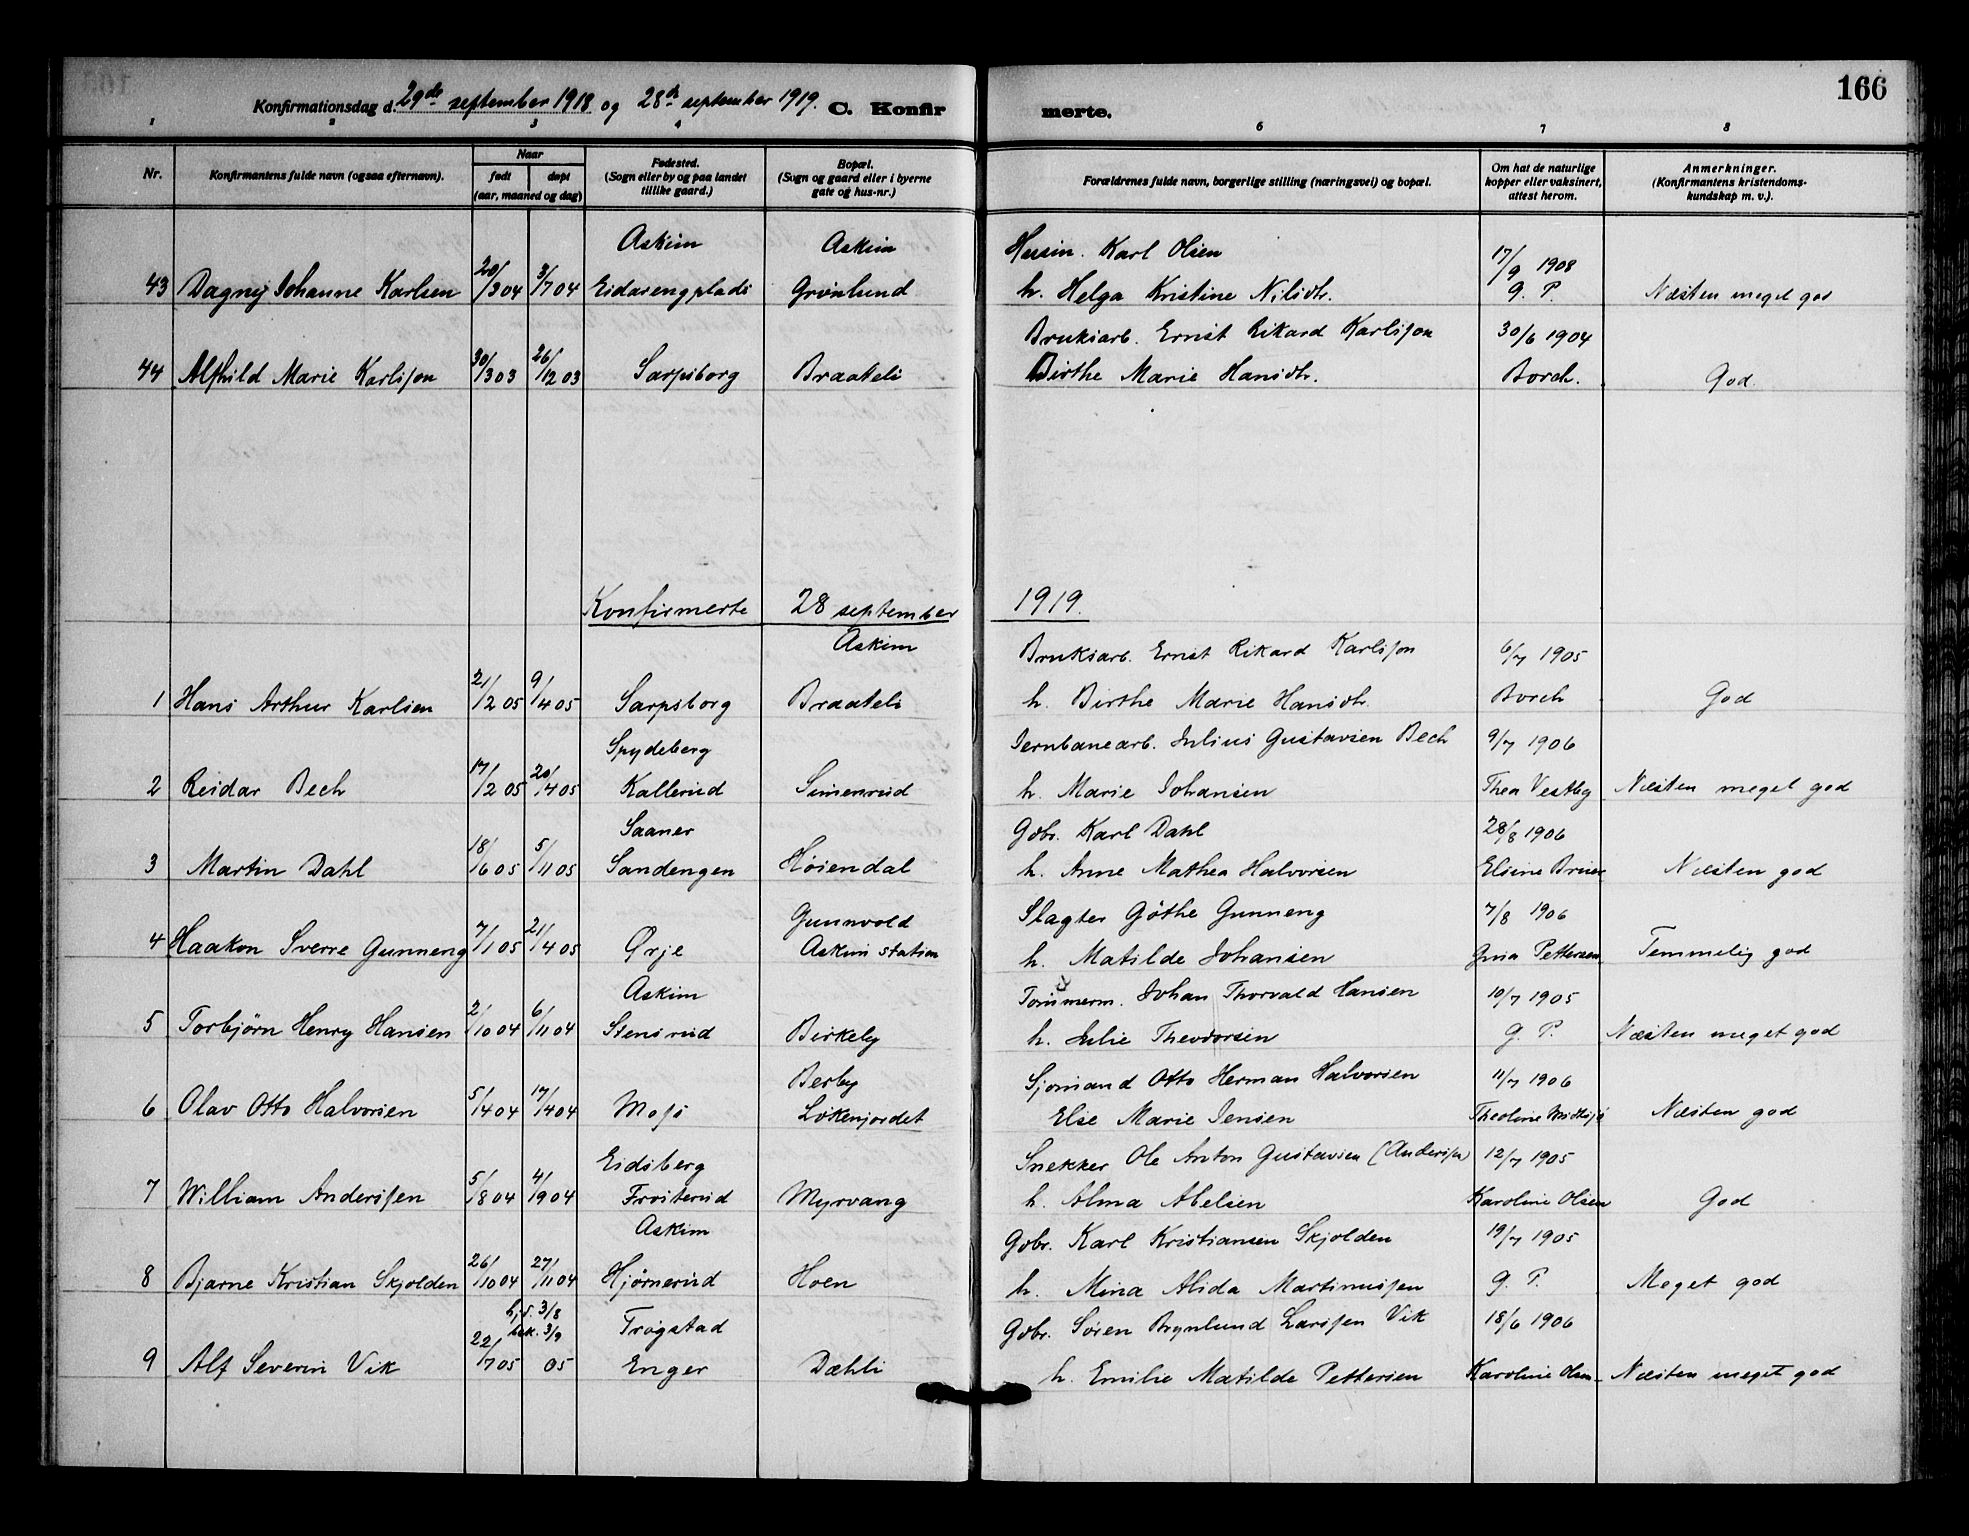 166
Konfirmationsdag d. 29de september 1918 og 28de september 1919. C. Konfirmerte.
1 2 3 4 6 7 8
Nr.
Konfirmantens fulde navn (ogsaa efternavn).
Naar
født døpt
(aar, maaned og dag)
Fødested.
(Sogn eller by og paa landet
tillike gaard.)
Bopæl.
(Sogn og gaard eller i byerne
gate og hus-nr.)
Forældrenes fulde navn, borgerlige stilling (næringsvei) og bopæl.
Om hat de naturlige
kopper eller vaksinert,
attest herom.
Anmerkninger.
(Konfirmantens kristendoms-
kundskap m. v.).
Askim Askim Husm. Karl Olsen 17/9 1908
43 Dagny Johanne Karlsen 20/3 04 3/7 04 Eidarengplads Grønlund h. Helga Kristine Nilsdtr. G. P. Næsten meget god
Bruksarb. Ernst Rikard Karlsson 30/6 1904
44 Alfhild Marie Karlsson 30/3 03 26/12 03 Sarpsborg Braateli Birthe Marie Hansdtr. Borch. God.
Konfirmerte 28 september 1919.
Askim Bruksarb. Ernst Rikard Karlsson 6/7 1905
1 Hans Arthur Karlsen 21/2 05 9/4 05 Sarpsborg Braateli h. Birthe Marie Hansdtr. Borch God
Spydeberg Jernbanearb. Julius Gustavsen Bech 9/7 1906
2 Reidar Bech 17/2 05 20/4 05 Kallerud Simenrud h. Marie Johansen Thea Vestby Næsten meget god
Saaner Gdbr. Karl Dahl 28/8 1906
3 Martin Dahl 18/6 05 5/11 05 Sandengen Høiendal h. Anne Mathea Halvorsen Elsine Næsten god
Gunnvold Slagter Göthe Gunneng 7/8 1906
4 Haakon Sverre Gunneng 7/1 05 21/4 05 Ørje Askim station h. Matilde Johansen Gina Pettersen Temmelig god
Askim Tømmerm. Johan Thorvald Hansen 10/7 1905
5 Torbjørn Henry Hansen 2/10 04 6/11 04 Stensrud Birkely h. Julie Theodorsen G. P. Næsten meget god
Berby Sjømand Otto Herman Halvorsen 11/7 1906
6 Olav Otto Halvorsen 5/4 04 17/4 04 Moss Løkenjordet Else Marie Jensen Theoline Næsten god
Eidsberg Snekker Ole Anton Gustavsen (Anderssen) 12/7 1905
7 William Anderssen 5/8 04 4/9 04 Froiterud Myrvang h. Alma Abelsen Karoline Olsen God
Askim Gdbr. Karl Kristiansen Skjolden 19/7 1905
8 Bjarne Kristian Skjolden 26/10 04 27/11 04 Hjørnerud Hoen h. Mina Alida Martinussen G. P. Meget god
hj.d. 3/8
bek. 3/9 Trøgstad Gdbr. Søren Brynlund Larssen Vik 18/6 1906
9 Alf Severin Vik 22/7 05 05 Enger Dæhli h. Emilie Matilde Pettersen Karoline Olsen Næsten meget god